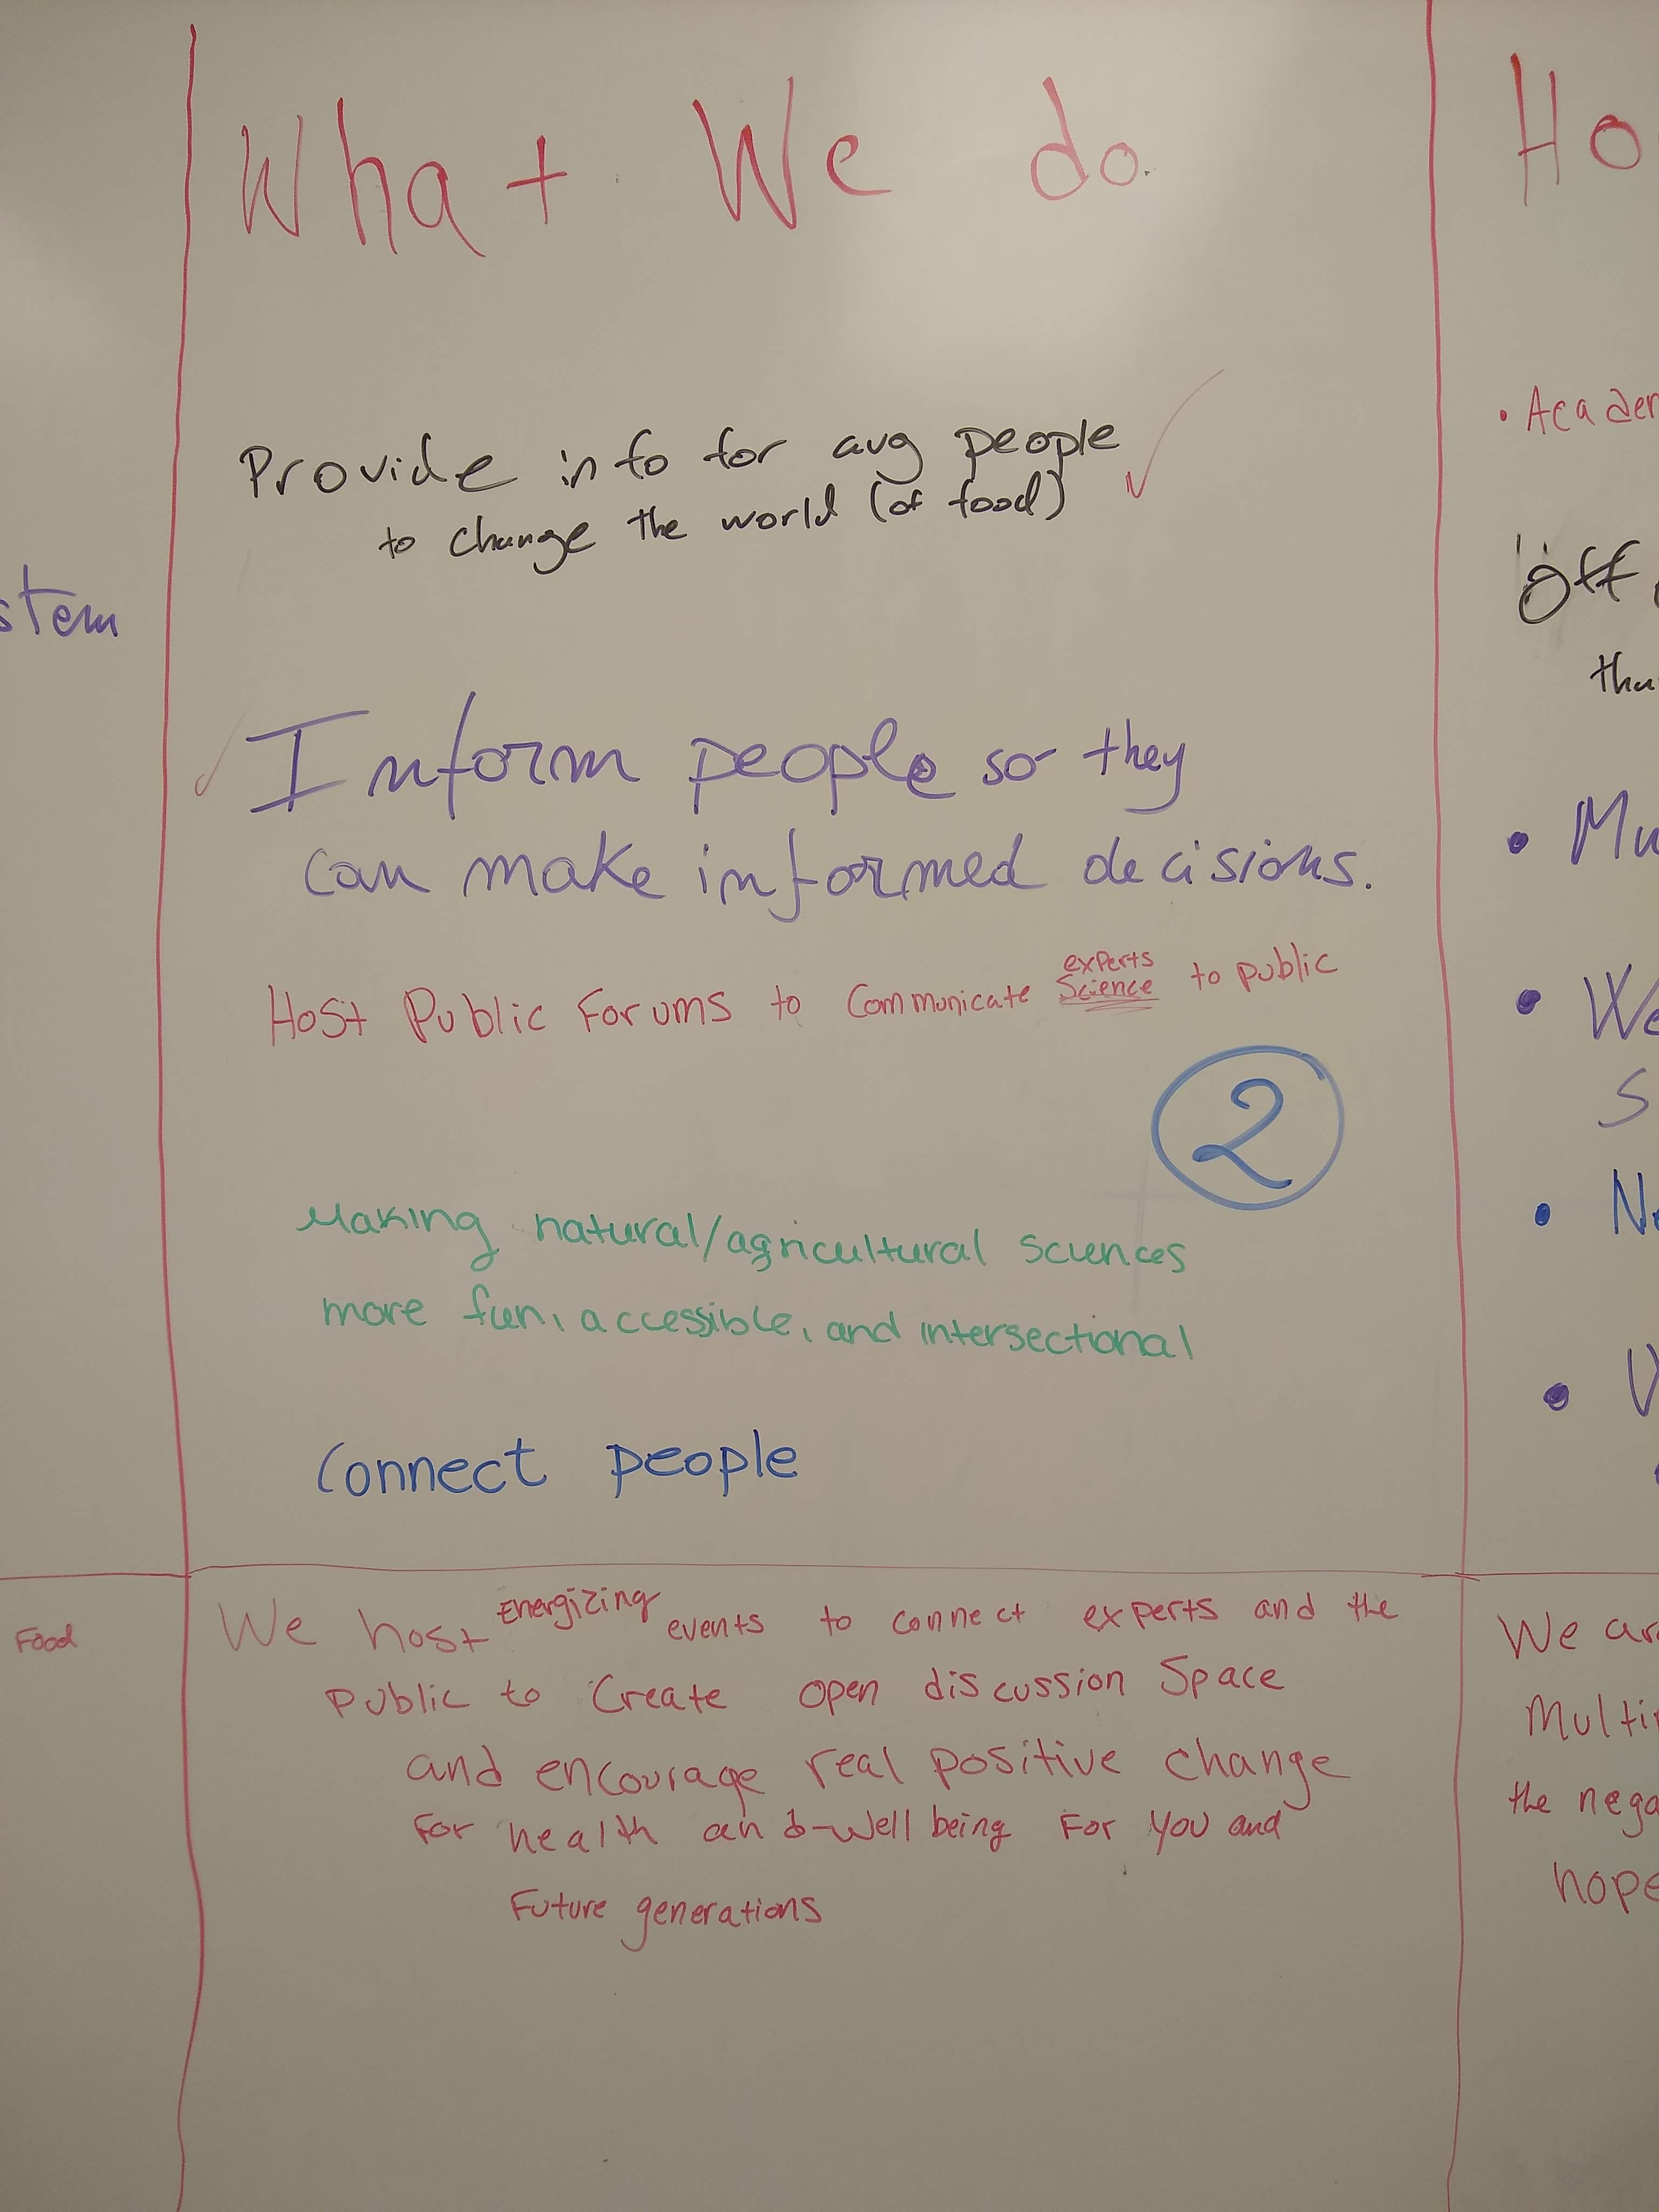 What We do
Provide info for avg people
to change the world (of food)
Inform people so they
can make informed decisions.
experts
Host Public Forums to Communicate Science to public
2
Making natural/agricultural sciences
more fun, accessible, and intersectional
Connect people
We host Energizing events to connect experts and the
Public to Create open discussion Space
and encourage real positive change
For health and well being For You and
Future generations
stem
Food
Ho
• Academ
Off
tha
• Mu
• We
S
• Ne
We ar
Multi
the nega
hope